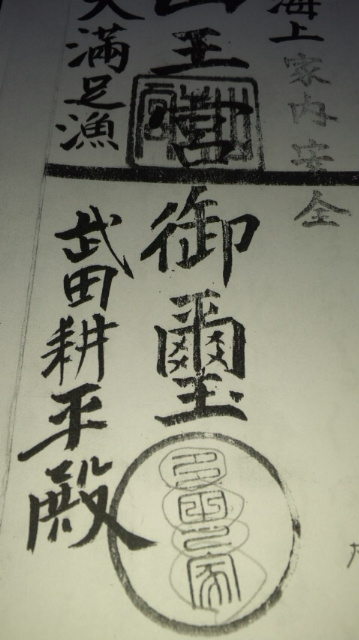 海上家内安全
山王宮御璽
大満足漁
武田耕平殿